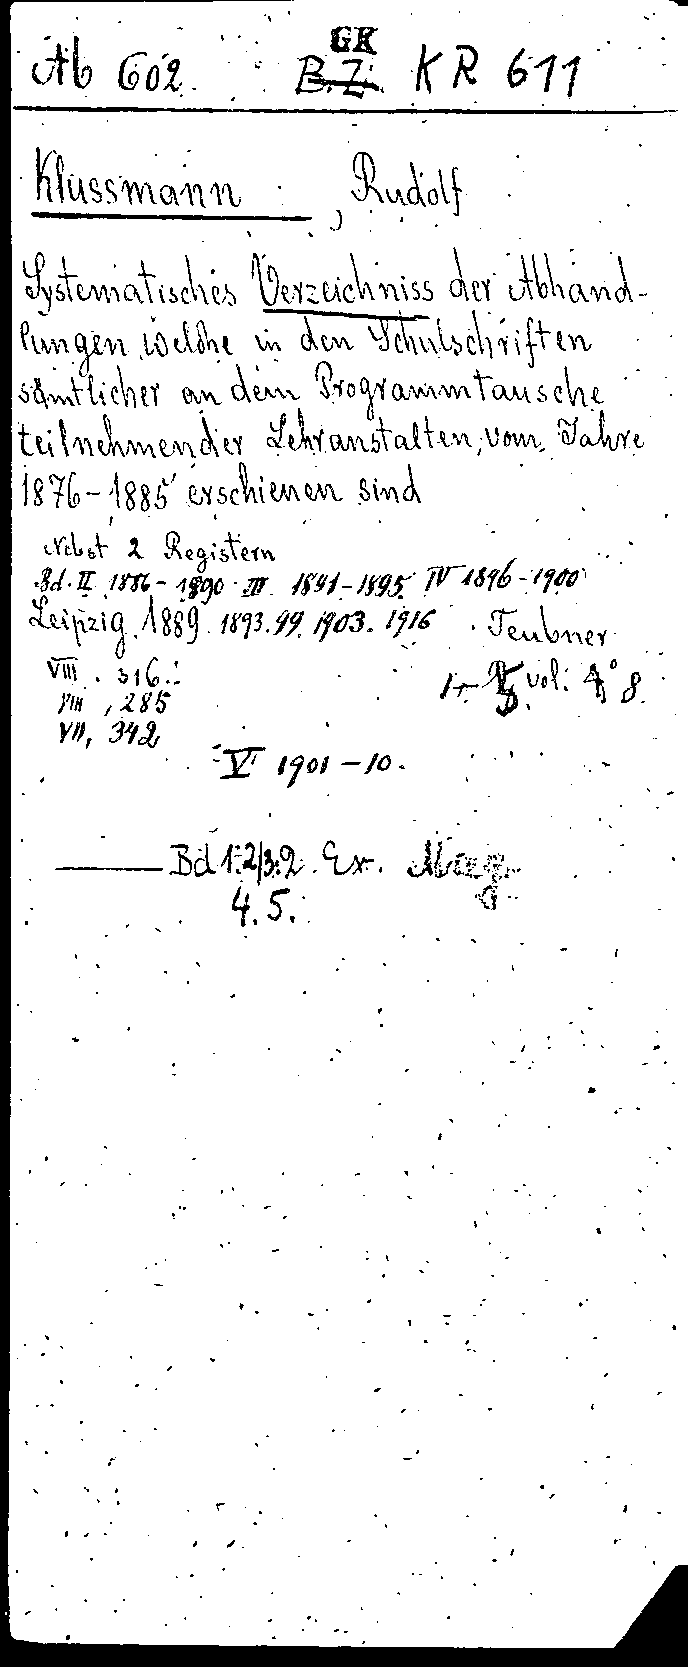 GK
Ab 602 B.Z. KR 611
Klussmann, Rudolf
Systematisches Verzeichniss der Abhand-
lungen welche in den Schulschriften
sämtlicher an dem Programmtausche
teilnehmender Lehranstalten, vom Jahre
1876-1885 erschienen sind
Nebst 2 Registern
Bd. II 1886-1890 III 1891-1895 IV 1896-1900
Leipzig 1889. 1893. 99. 1903. 1916 Teubner
VIII. 316. 1-5 vol. 8
VIII, 285
VII, 342
V 1901-10.
Bd 1.2/3.2. Ex. Mag
4. 5.